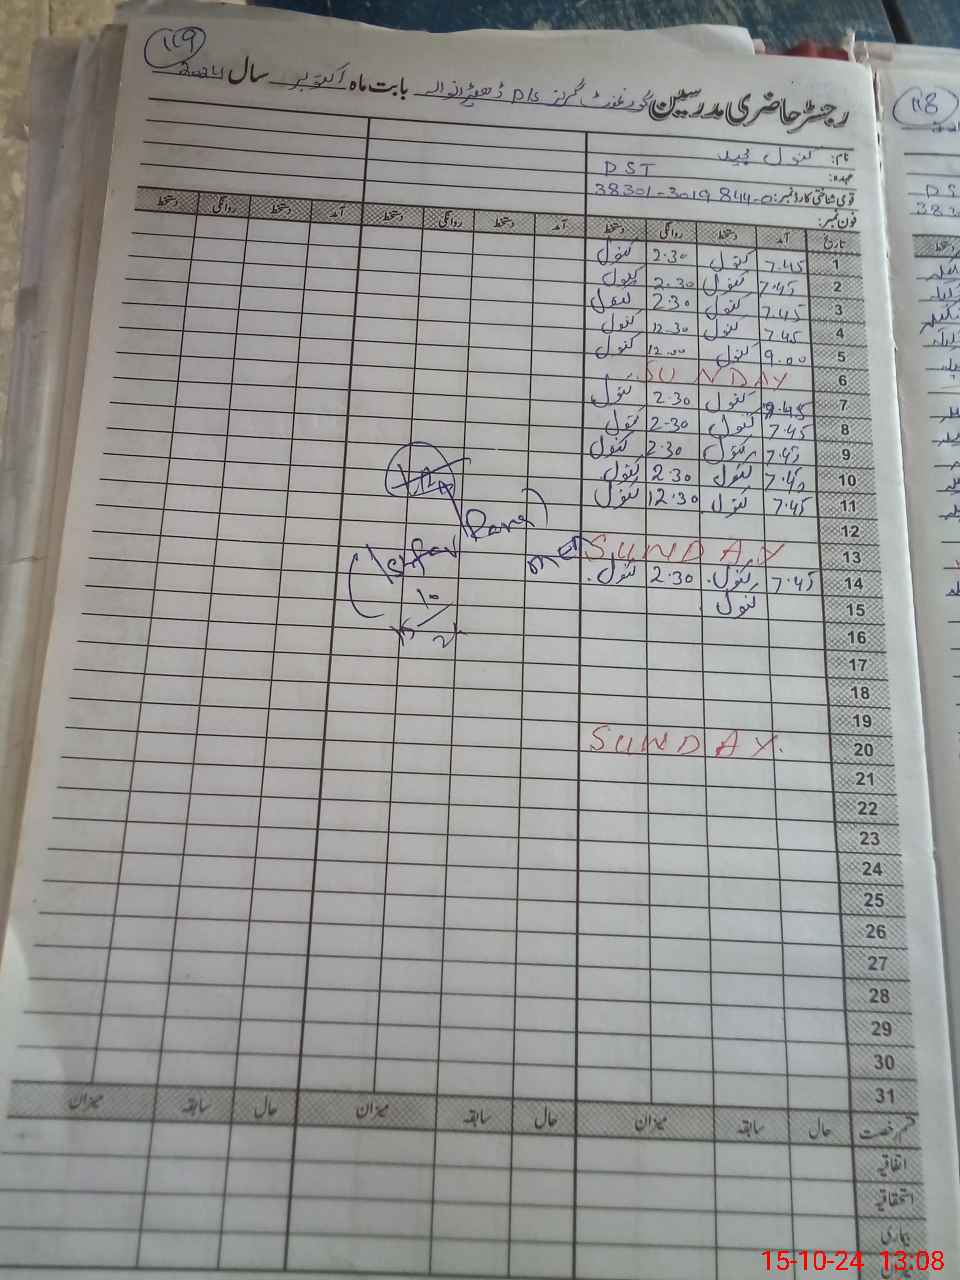 119
رجسٹر حاضری مدرسین گورنمنٹ گرلز P/S بابت ماہ اکتوبر سال 2024
118
نام: کنول
عہدہ: DST
قومی شناختی کارڈ نمبر: 38301-3019844-0
فون نمبر:
تاریخ آمد دستخط روانگی دستخط آمد دستخط روانگی دستخط آمد دستخط روانگی دستخط
1 7.45 کنول 2.30 کنول
2 7.45 کنول 2.30 کنول
3 7.45 کنول 2.30 کنول
4 7.45 کنول 12.30 کنول
5 9.00 کنول 12.00 کنول
6 SUNDAY
7 7.45 کنول 2.30 کنول
8 7.45 کنول 2.30 کنول
9 7.45 کنول 2.30 کنول
10 7.45 کنول 2.30 کنول
11 7.45 کنول 12.30 کنول
12
13 SUNDAY
14 7.45 کنول 2.30 کنول
15 کنول
16
17
18
19
20 SUNDAY
21
22
23
24
25
26
27
28
29
30
31
قسم رخصت حال سابقہ میزان حال سابقہ میزان حال سابقہ میزان
اتفاقیہ
استحقاقیہ
بیماری
میزان
15-10-24 13:08